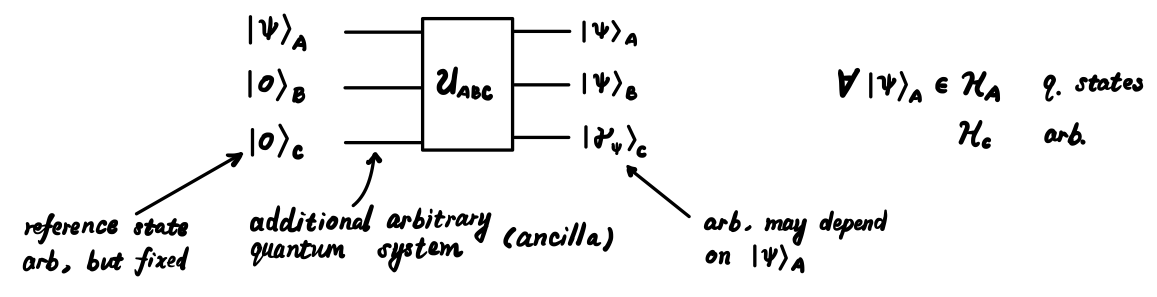 |Ψ⟩_A
|0⟩_B
|0⟩_C
U_ABC
|Ψ⟩_A
|Ψ⟩_B
|γ_Ψ⟩_C
∀ |Ψ⟩_A ∈ H_A q. states
H_C arb.
reference state
arb, but fixed
additional arbitrary
quantum system (ancilla)
arb. may depend
on |Ψ⟩_A